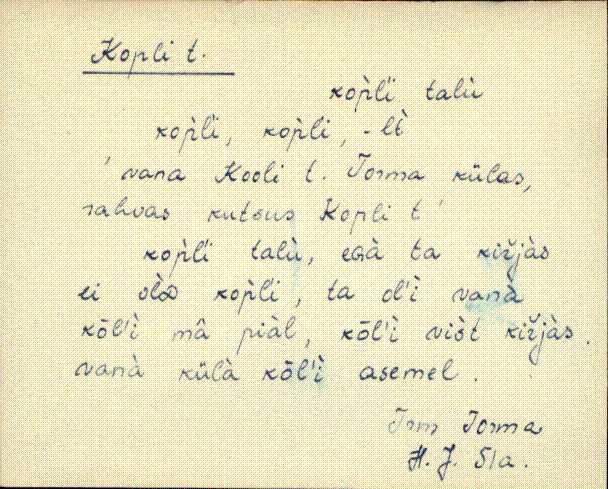 Kopli t.
kop̀li̮i talù
kop̀li̮i, kop̀li, -lt̀
' vana Kooli t. Torma külas,
rahvas kutsus Kopli t '
kop̀li̮i talù, ta kiŕjàs
ei kop̀li̮i, ta ol'ì vanà
kōl'ì mâ piàl, kōl'ì vis̀t kiŕjàs.
vanà külà kōl'ì asemel.
Trm Torma
H. J. 51a.